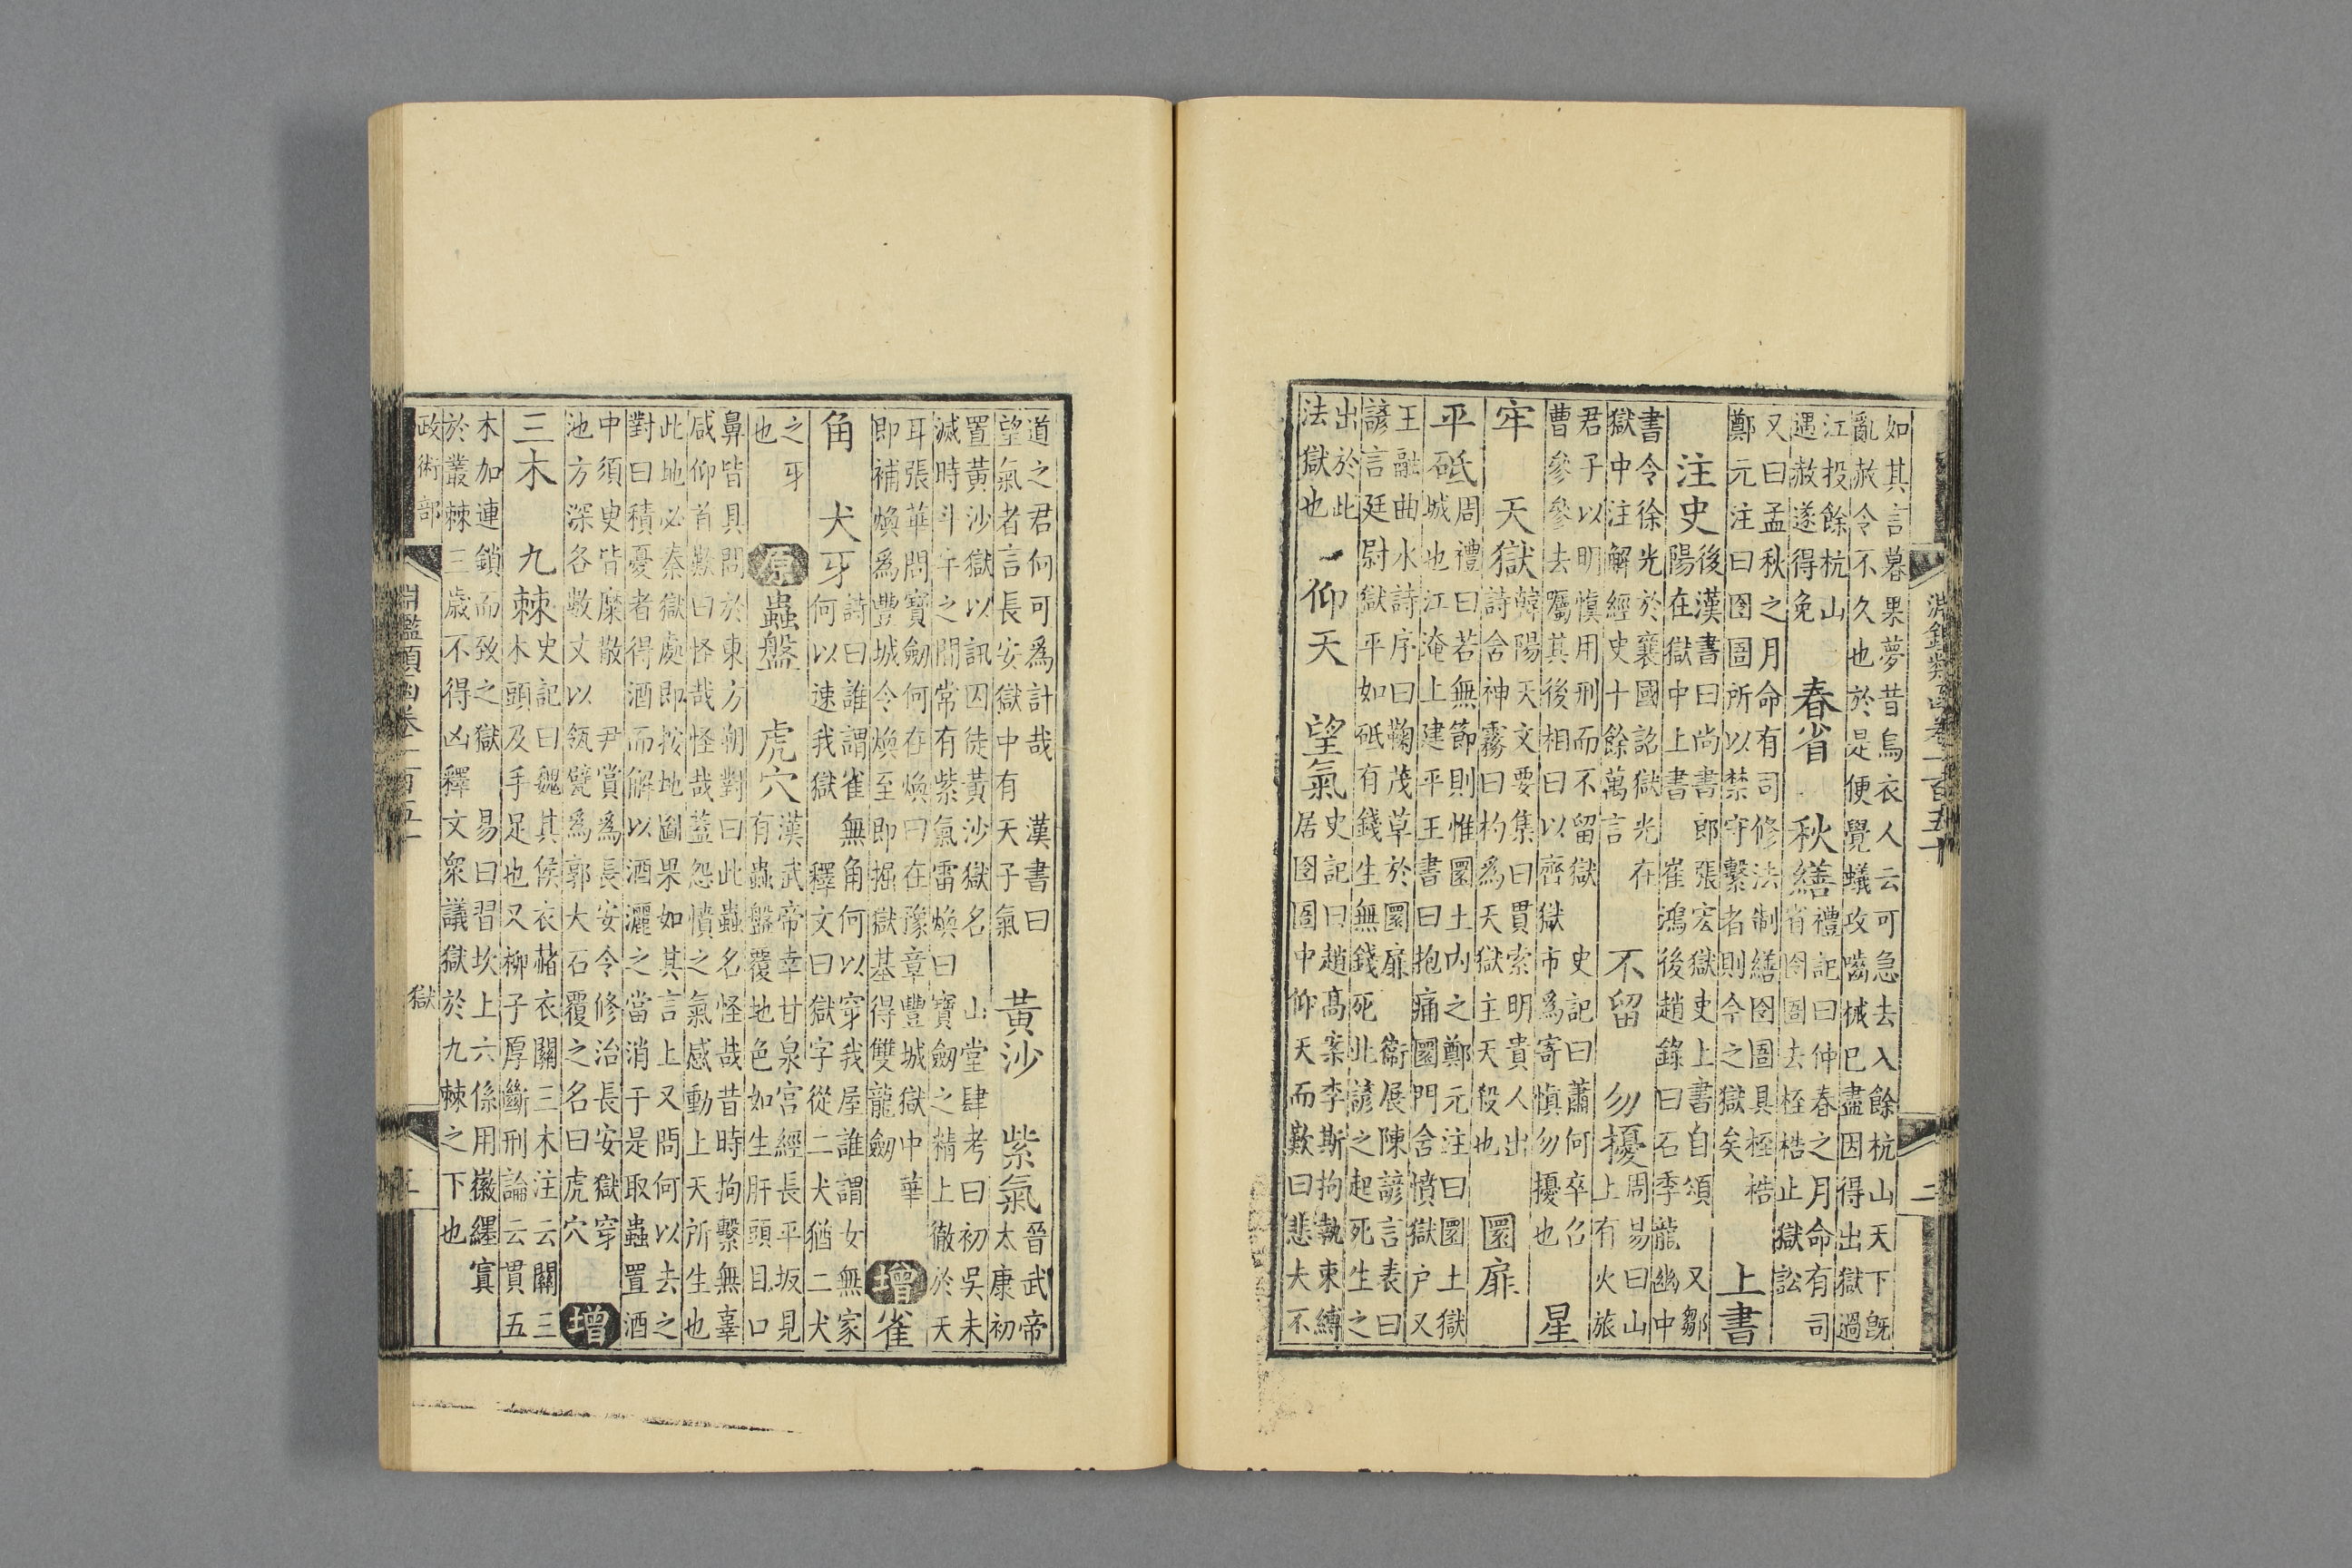 淵鑑類函卷一百五十
二
如其言暮果夢昔烏衣人云可急去入餘杭山天下既
亂赦令不久也於是便覺蟻攻嚙械巳盡因得出獄過
江投餘杭山
遇赦遂得免
春省 秋繕
禮記曰仲春之月命有司
省囹圄去桎梏止獄訟
又曰孟秋之月命有司修法制繕囹圄具桎梏
鄭元注曰囹圄所以禁守繫者則今之獄矣
上書
注史
後漢書曰尚書郎張宏獄吏上書自頌 又鄒
陽在獄中上書 崔鴻後趙錄曰石季龍幽中
書令徐光於襄國詔獄光在
獄中注解經史十餘萬言
不留 勿擾
周易曰山
上有火旅
君子以明慎用刑而不留獄 史記曰蕭何卒召
曹參參去囑其後相曰以齊獄市爲寄慎勿擾也
星
牢 天獄
韓陽天文要集曰貫索明貴人出
詩舍神霧曰杓爲天獄主天殺也
圜扉
平砥
周禮曰若無節則惟圜土內之鄭元注曰圜土獄
城也江淹上建平王書曰抱痛圜門舍憤獄户又
王融曲水詩序曰鞠茂草於圜扉 衞展陳諺言表曰
諺言廷尉獄平如砥有錢生無錢死此諺之起死生之
出於此
法獄也
仰天 望氣
史記曰趙高案李斯拘執束縛
居囹圄中仰天而歎曰悲夫不
道之君何可爲計哉 漢書曰
望氣者言長安獄中有天子氣
黃沙 紫氣
晉武帝
太康初
置黃沙獄以訊囚徒黃沙獄名 山堂肆考曰初吳未
滅時斗牛之間常有紫氣雷煥曰寶劔之精上徹於天
耳張華問寶劔何在煥曰在豫章豐城獄中華
即補煥爲豐城令煥至即掘獄基得雙龍劔
增 雀
角 犬牙
詩曰誰謂雀無角何以穿我屋誰謂女無家
何以速我獄 釋文曰獄字從二犬猶二犬
之牙
也
原 蟲盤 虎穴
漢武帝幸甘泉宮經長平坂見
有蟲盤覆地色如生肝頭目口
鼻皆具問於東方朔對曰此蟲名怪哉昔時拘繫無辜
咸仰首歎曰怪哉怪哉蓋怨憤之氣感動上天所生也
此地必秦獄處即按地圖果如其言上又問何以去之
對曰積憂者得酒而解以酒灑之當消于是取蟲置酒
中須臾皆糜散 尹賞爲長安令修治長安獄穿
池方深各數丈以瓴甓爲郭大石覆之名曰虎穴
增
三木 九棘
史記曰魏其侯衣赭衣關三木注云關三
木頭及手足也又柳子厚斷刑論云貫五
木加連鎖而致之獄 易曰習坎上六係用徽纆寘
於叢棘三歲不得凶釋文衆議獄於九棘之下也
政術部 獄
淵鑑類函卷一百五十
三